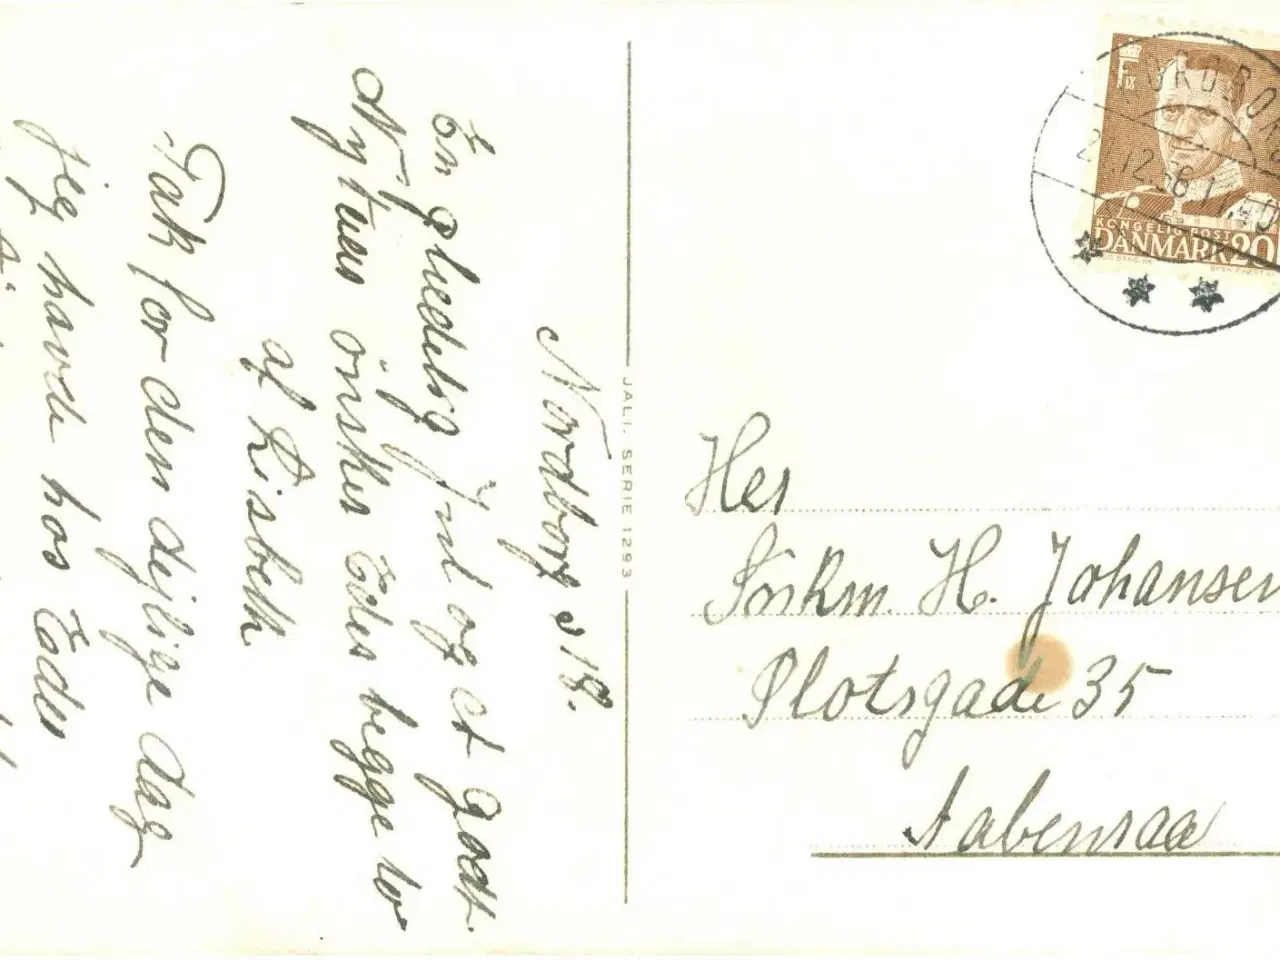 Nordborg d 18.
En glædelig Jul og et godt
Nytaar önskes Eder begge to
af Lisbeth
Tak for den dejlige dag
jeg havde hos Eder
JALI. SERIE 1293
NORDBORG
12.56.17.40
F IX
KONGELIG POST
DANMARK 20
Her
H. Johansen
Plotsgade 35
Aabenraa